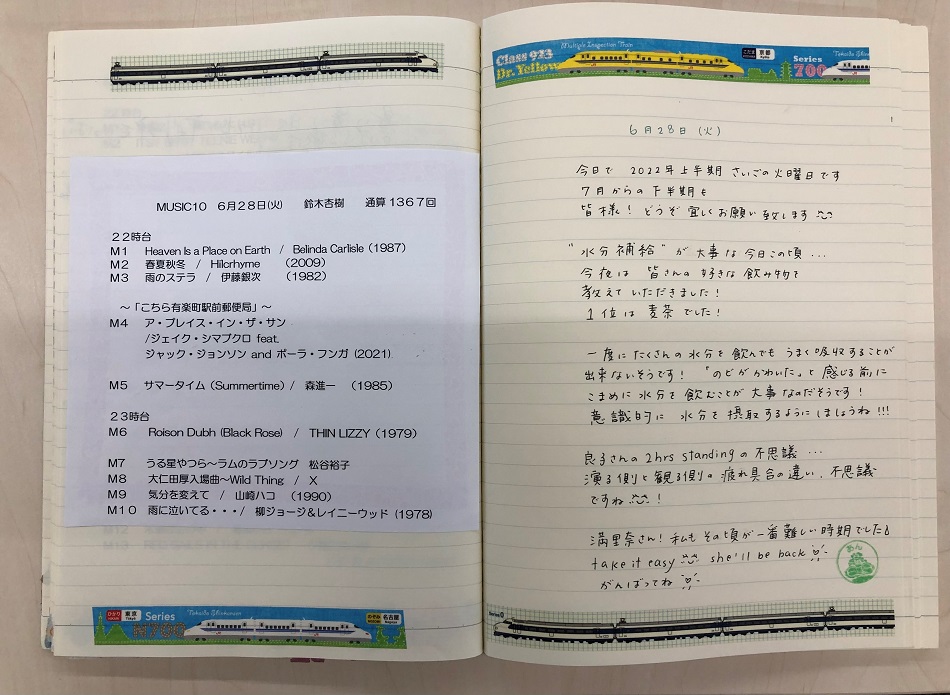 MUSIC10 6月28日(火) 鈴木杏樹 通算1367回
22時台
M1 Heaven Is a Place on Earth / Belinda Carlisle (1987)
M2 春夏秋冬 / Hilcrhyme (2009)
M3 雨のステラ / 伊藤銀次 (1982)
～「こちら有楽町駅前郵便局」～
M4 ア・プレイス・イン・ザ・サン
/ジェイク・シマブクロ feat.
ジャック・ジョンソン and ポーラ・フンガ (2021)
M5 サマータイム (Summertime) / 森進一 (1985)
23時台
M6 Roison Dubh (Black Rose) / THIN LIZZY (1979)
M7 うる星やつら～ラムのラブソング 松谷祐子
M8 大仁田厚入場曲～Wild Thing / X
M9 気分を変えて / 山崎ハコ (1990)
M10 雨に泣いてる・・・/ 柳ジョージ&レイニーウッド (1978)
ひかり 東京 Tokyo Series N700 Tokaido Shinkansen のぞみ 名古屋 Nagoya
Class 923 Dr. Yellow Multiple Inspection Train こだま 京都 Kyoto Series 700
6月28日(火)
今日で 2022年上半期 さいごの火曜日です
7月からの下半期も
皆様！どうぞ宜しくお願い致します
"水分補給"が大事な今日この頃...
今夜は 皆さんの好きな飲み物を
教えていただきました！
1位は麦茶でした！
一度にたくさんの水分を飲んでもうまく吸収することが
出来ないそうです！「のどがかわいた」と感じる前に
こまめに水分を飲むことが大事なのだそうです！
意識的に 水分を摂取するようにしましょうね!!!
良子さんの2hrs standingの不思議...
演る側と観る側の疲れ具合の違い、不思議
ですね！
満里奈さん！私もその頃が一番難しい時期でした
take it easy she'll be back
がんばってね
あん